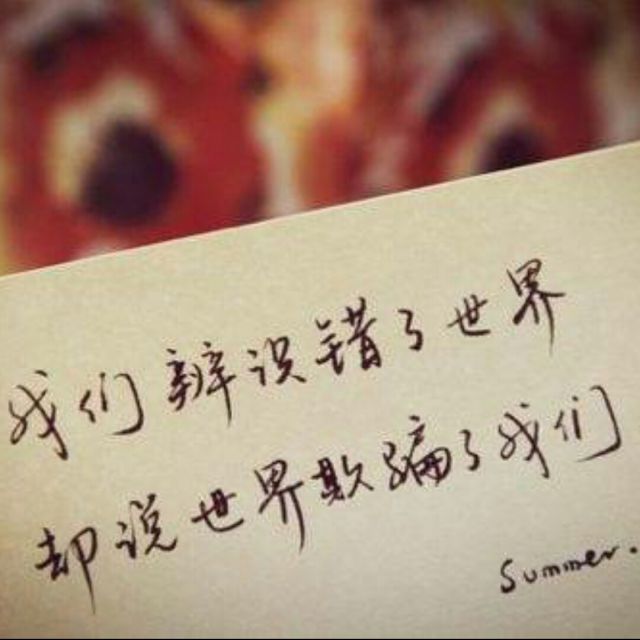 我们辨识错了世界
却说世界欺骗了我们
Summer.